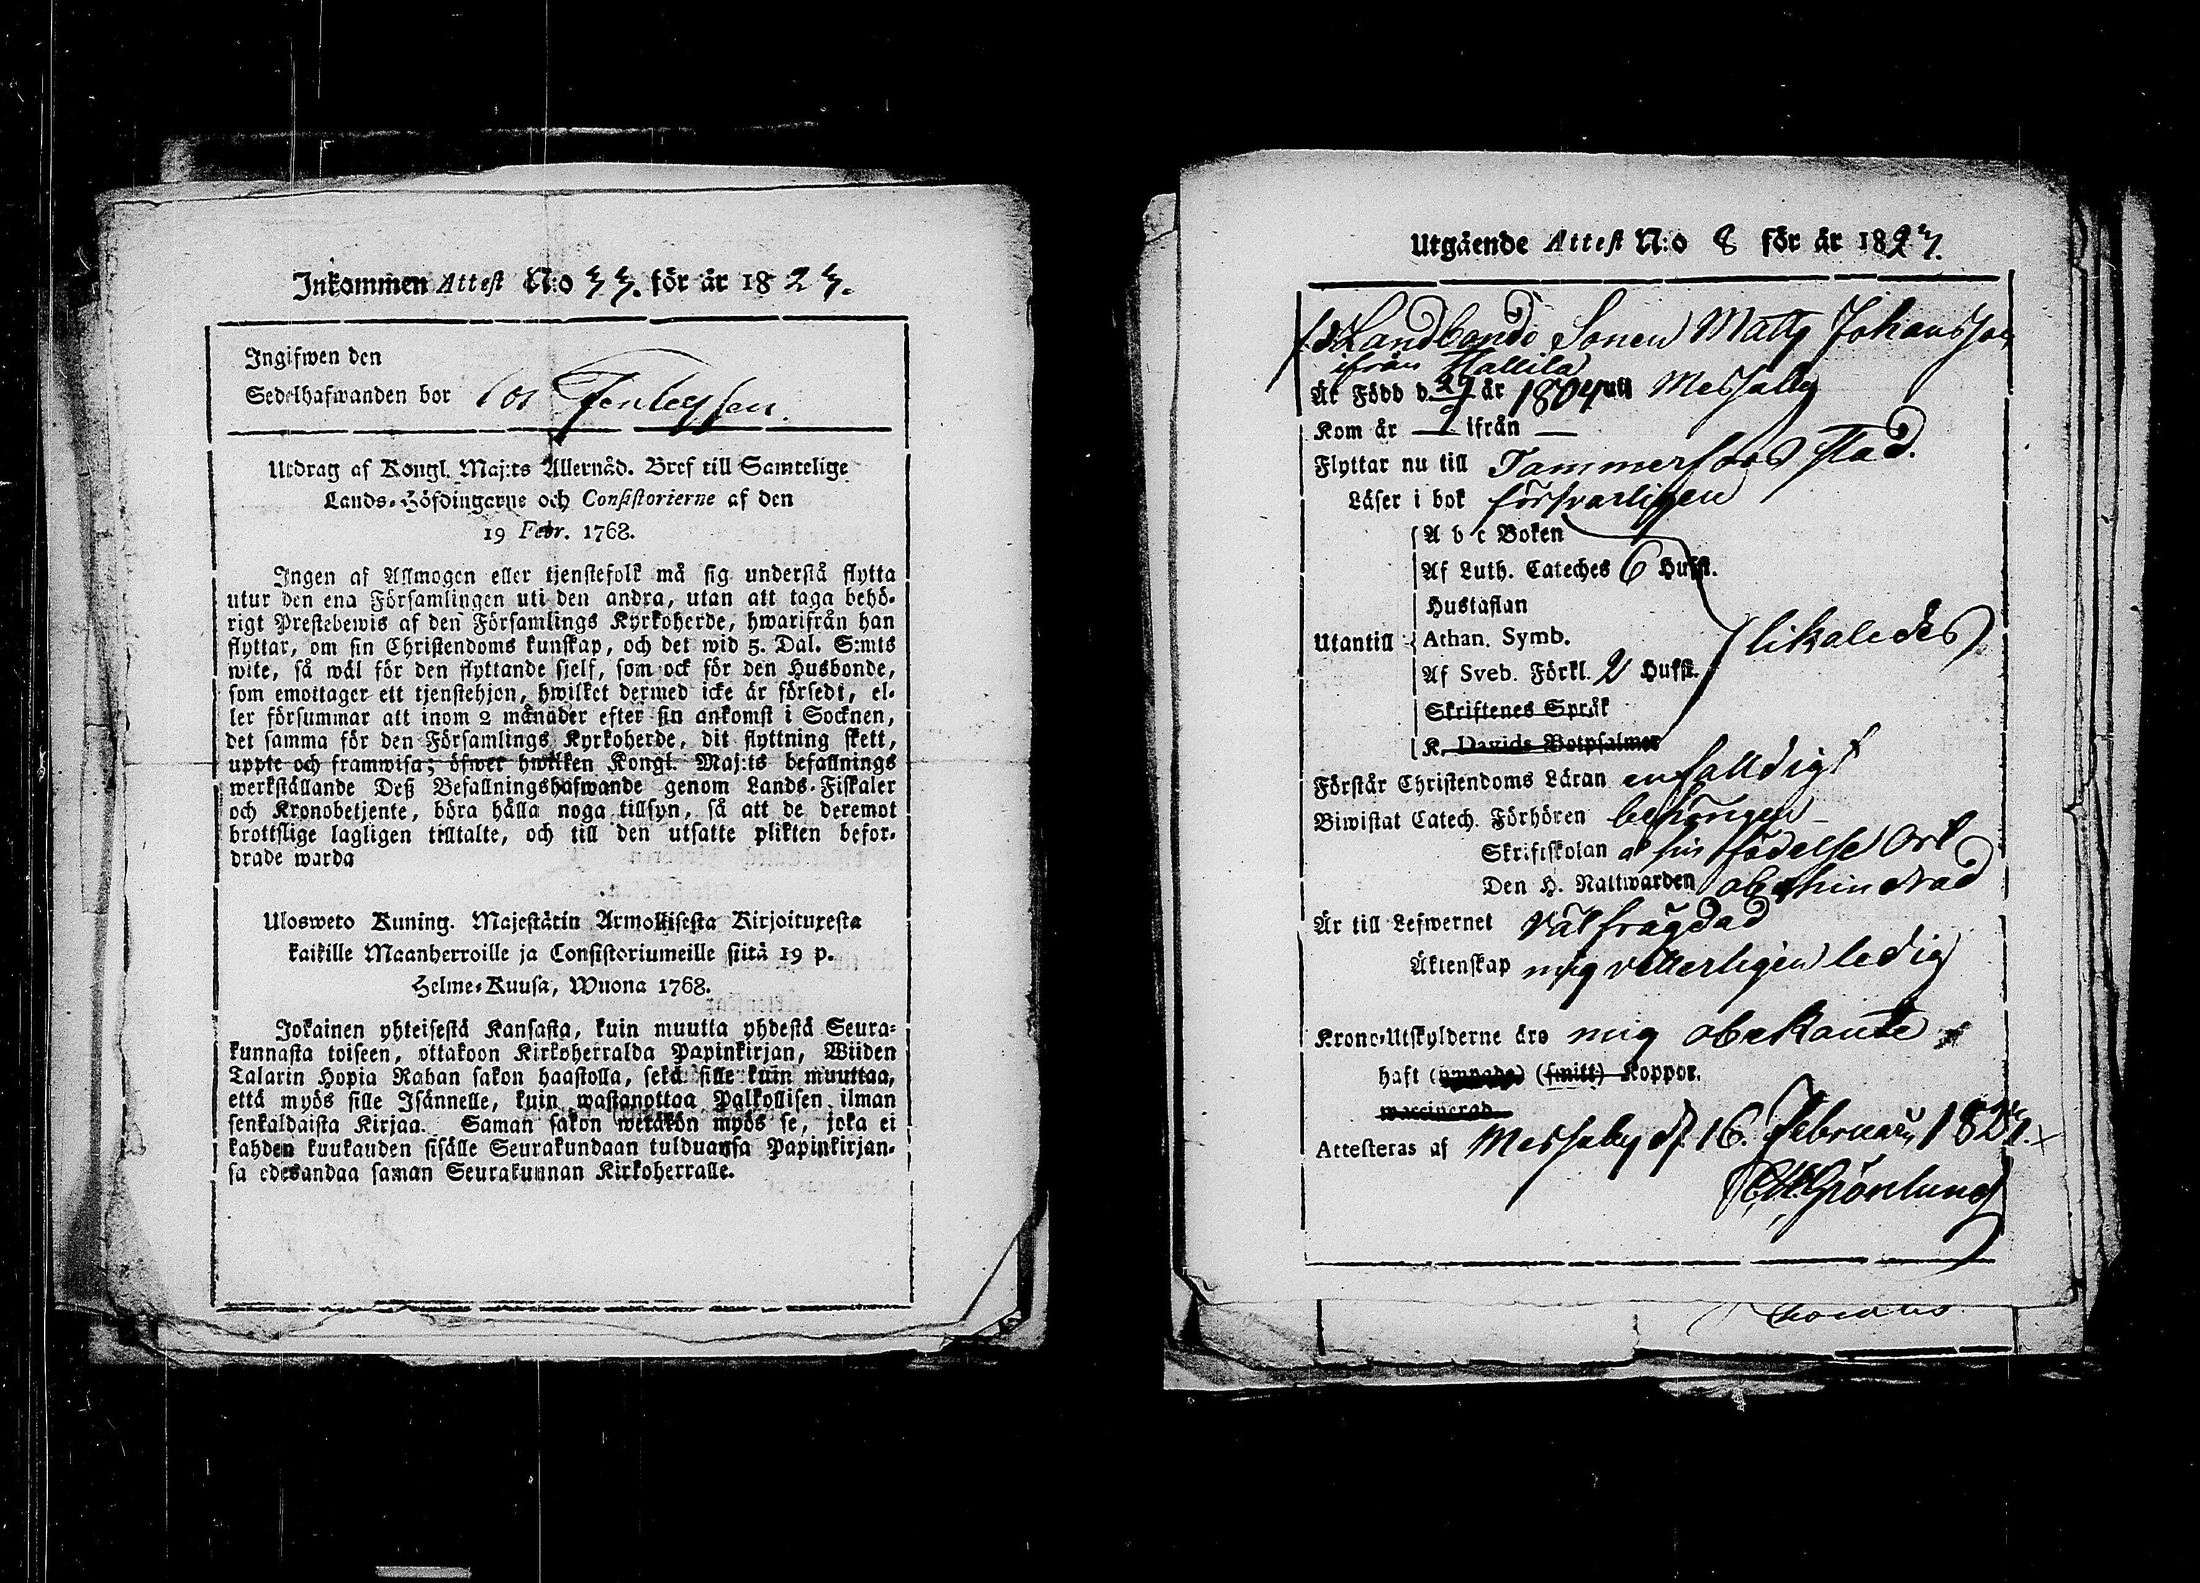 Inkommen Attest N:o 33. för år 1823.
Ingifwen den
Sedelhafwanden bor hos
Utdrag af Kongl. Maj:ts Allernåd. Bref till Samtelige
Lands-Höfdingarne och Consistorierne af den
19 Febr. 1768.
Ingen af Allmogen eller tjenstefolk må sig understå flytta
utur den ena Församlingen uti den andra, utan att taga behö-
rigt Prestebewis af den Församlings Kyrkoherde, hwarifrån han
flyttar, om sin Christendoms kunskap, och det wid 5. Dal. S:mts
wite, så wäl för den flyttande sjelf, som ock för den Husbonde,
som emottager ett tjenstehjon, hwilket dermed icke är försedt, el-
ler försummar att inom 2 månader efter sin ankomst i Socknen,
det samma för den Församlings Kyrkoherde, dit flyttning skett,
uppte och framwisa; öfwer hwilken Kongl. Maj:ts befallnings
werkställande Deß Befallningshafwande genom Lands-Fiskaler
och Kronobetjente, böra hålla noga tillsyn, så att de deremot
brottslige lagligen tilltalte, och till den utsatte plikten befor-
drade warda
Ulosweto Kuning. Majestätin Armollisesta Kirjoituxesta
kaikille Maanherroille ja Consistoriumeille siitä 19 p.
Helme-Kuusa, Wuona 1768.
Jokainen yhteisestä Kansasta, kuin muutta yhdestä Seura-
kunnasta toiseen, ottakoon Kirkoherralda Papinkirjan, Wiiden
Talarin Hopia Rahan sakon haastolla, sekä sille kuin muuttaa,
että myös sille Isännelle, kuin wastanottaa Palkollisen ilman
senkaldaista Kirjaa. Saman sakon wetäkön myös se, joka ei
kahden kuukauden sisälle Seurakundaan tulduansa Papinkirjan-
sa edesandaa saman Seurakunnan Kirkoherralle.
Utgående Attest N:o 8 för år 1823.
Landbonde Sonen Matts Johansson
ifrån Hallila
Är Född d. 29/9 år 1804 uti Messuby
Kom år — ifrån —
Flyttar nu till Tammerfors stad.
Läser i bok försvarligen
A b c Boken
Af Luth. Cateches 6 Hufst.
Hustaflan
Utantill Athan. Symb. likaledes
Af Sveb. Förkl. 2 Hufst.
Skriftenes Språk
K. Davids Botpsalmer
Förstår Christendoms Läran enfalldigt
Biwistat Catech. Förhören behörigen
Skriftskolan å sin födelse Ort
Den H. Nattwarden obehindrad
Är till Lefwernet välfrägdad
Äktenskap mig vetterligen ledig
Krono-Utskylderne äro mig obekante
haft (ympade) (smitt) Koppor.
waccinerad
Attesteras af Messuby d. 16. Februarii 1823.
Grönlund